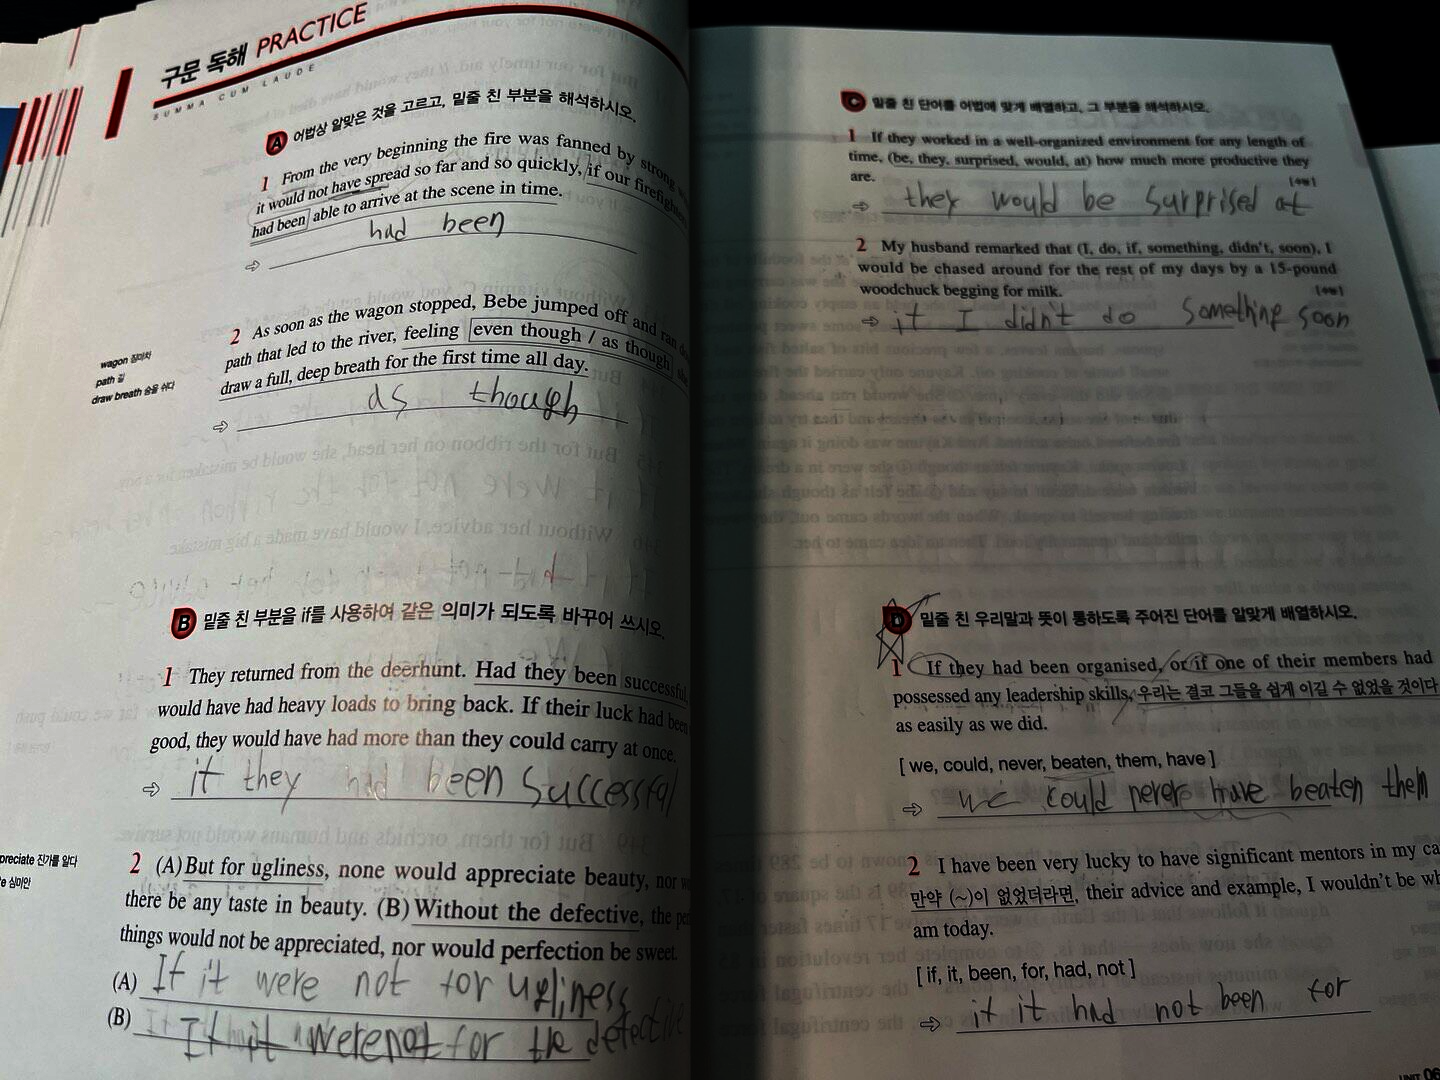 구문 독해 PRACTICE
SUMMA CUM LAUDE
A 어법상 알맞은 것을 고르고, 밑줄 친 부분을 해석하시오.
1 From the very beginning the fire was fanned by strong
it would not have spread so far and so quickly, if our firefighters
had been able to arrive at the scene in time.
had been
⇨
2 As soon as the wagon stopped, Bebe jumped off and ran
path that led to the river, feeling even though / as though
draw a full, deep breath for the first time all day.
as though
⇨
wagon 짐마차
path 길
draw breath 숨을 쉬다
B 밑줄 친 부분을 if를 사용하여 같은 의미가 되도록 바꾸어 쓰시오.
1 They returned from the deerhunt. Had they been successful,
would have had heavy loads to bring back. If their luck had been
good, they would have had more than they could carry at once.
⇨ if they had been successful
preciate 진가를 알다
te 심미안
2 (A) But for ugliness, none would appreciate beauty, nor
there be any taste in beauty. (B) Without the defective, the
things would not be appreciated, nor would perfection be sweet.
(A) If it were not for ugliness
(B) If it were not for the defective
C 밑줄 친 단어를 어법에 맞게 배열하고, 그 부분을 해석하시오.
1 If they worked in a well-organized environment for any length of
time, (be, they, surprised, would, at) how much more productive they
are. [수능]
⇨ they would be surprised at
2 My husband remarked that (I, do, if, something, didn't, soon), I
would be chased around for the rest of my days by a 15-pound
woodchuck begging for milk. [수능]
⇨ if I didn't do something soon
D 밑줄 친 우리말과 뜻이 통하도록 주어진 단어를 알맞게 배열하시오.
1 If they had been organised, or if one of their members had
possessed any leadership skills, 우리는 결코 그들을 쉽게 이길 수 없었을 것이다
as easily as we did.
[ we, could, never, beaten, them, have ]
⇨ we could never have beaten them
2 I have been very lucky to have significant mentors in my
만약 (~)이 없었더라면, their advice and example, I wouldn't be
am today.
[ if, it, been, for, had, not ]
⇨ if it had not been for
UNIT 06